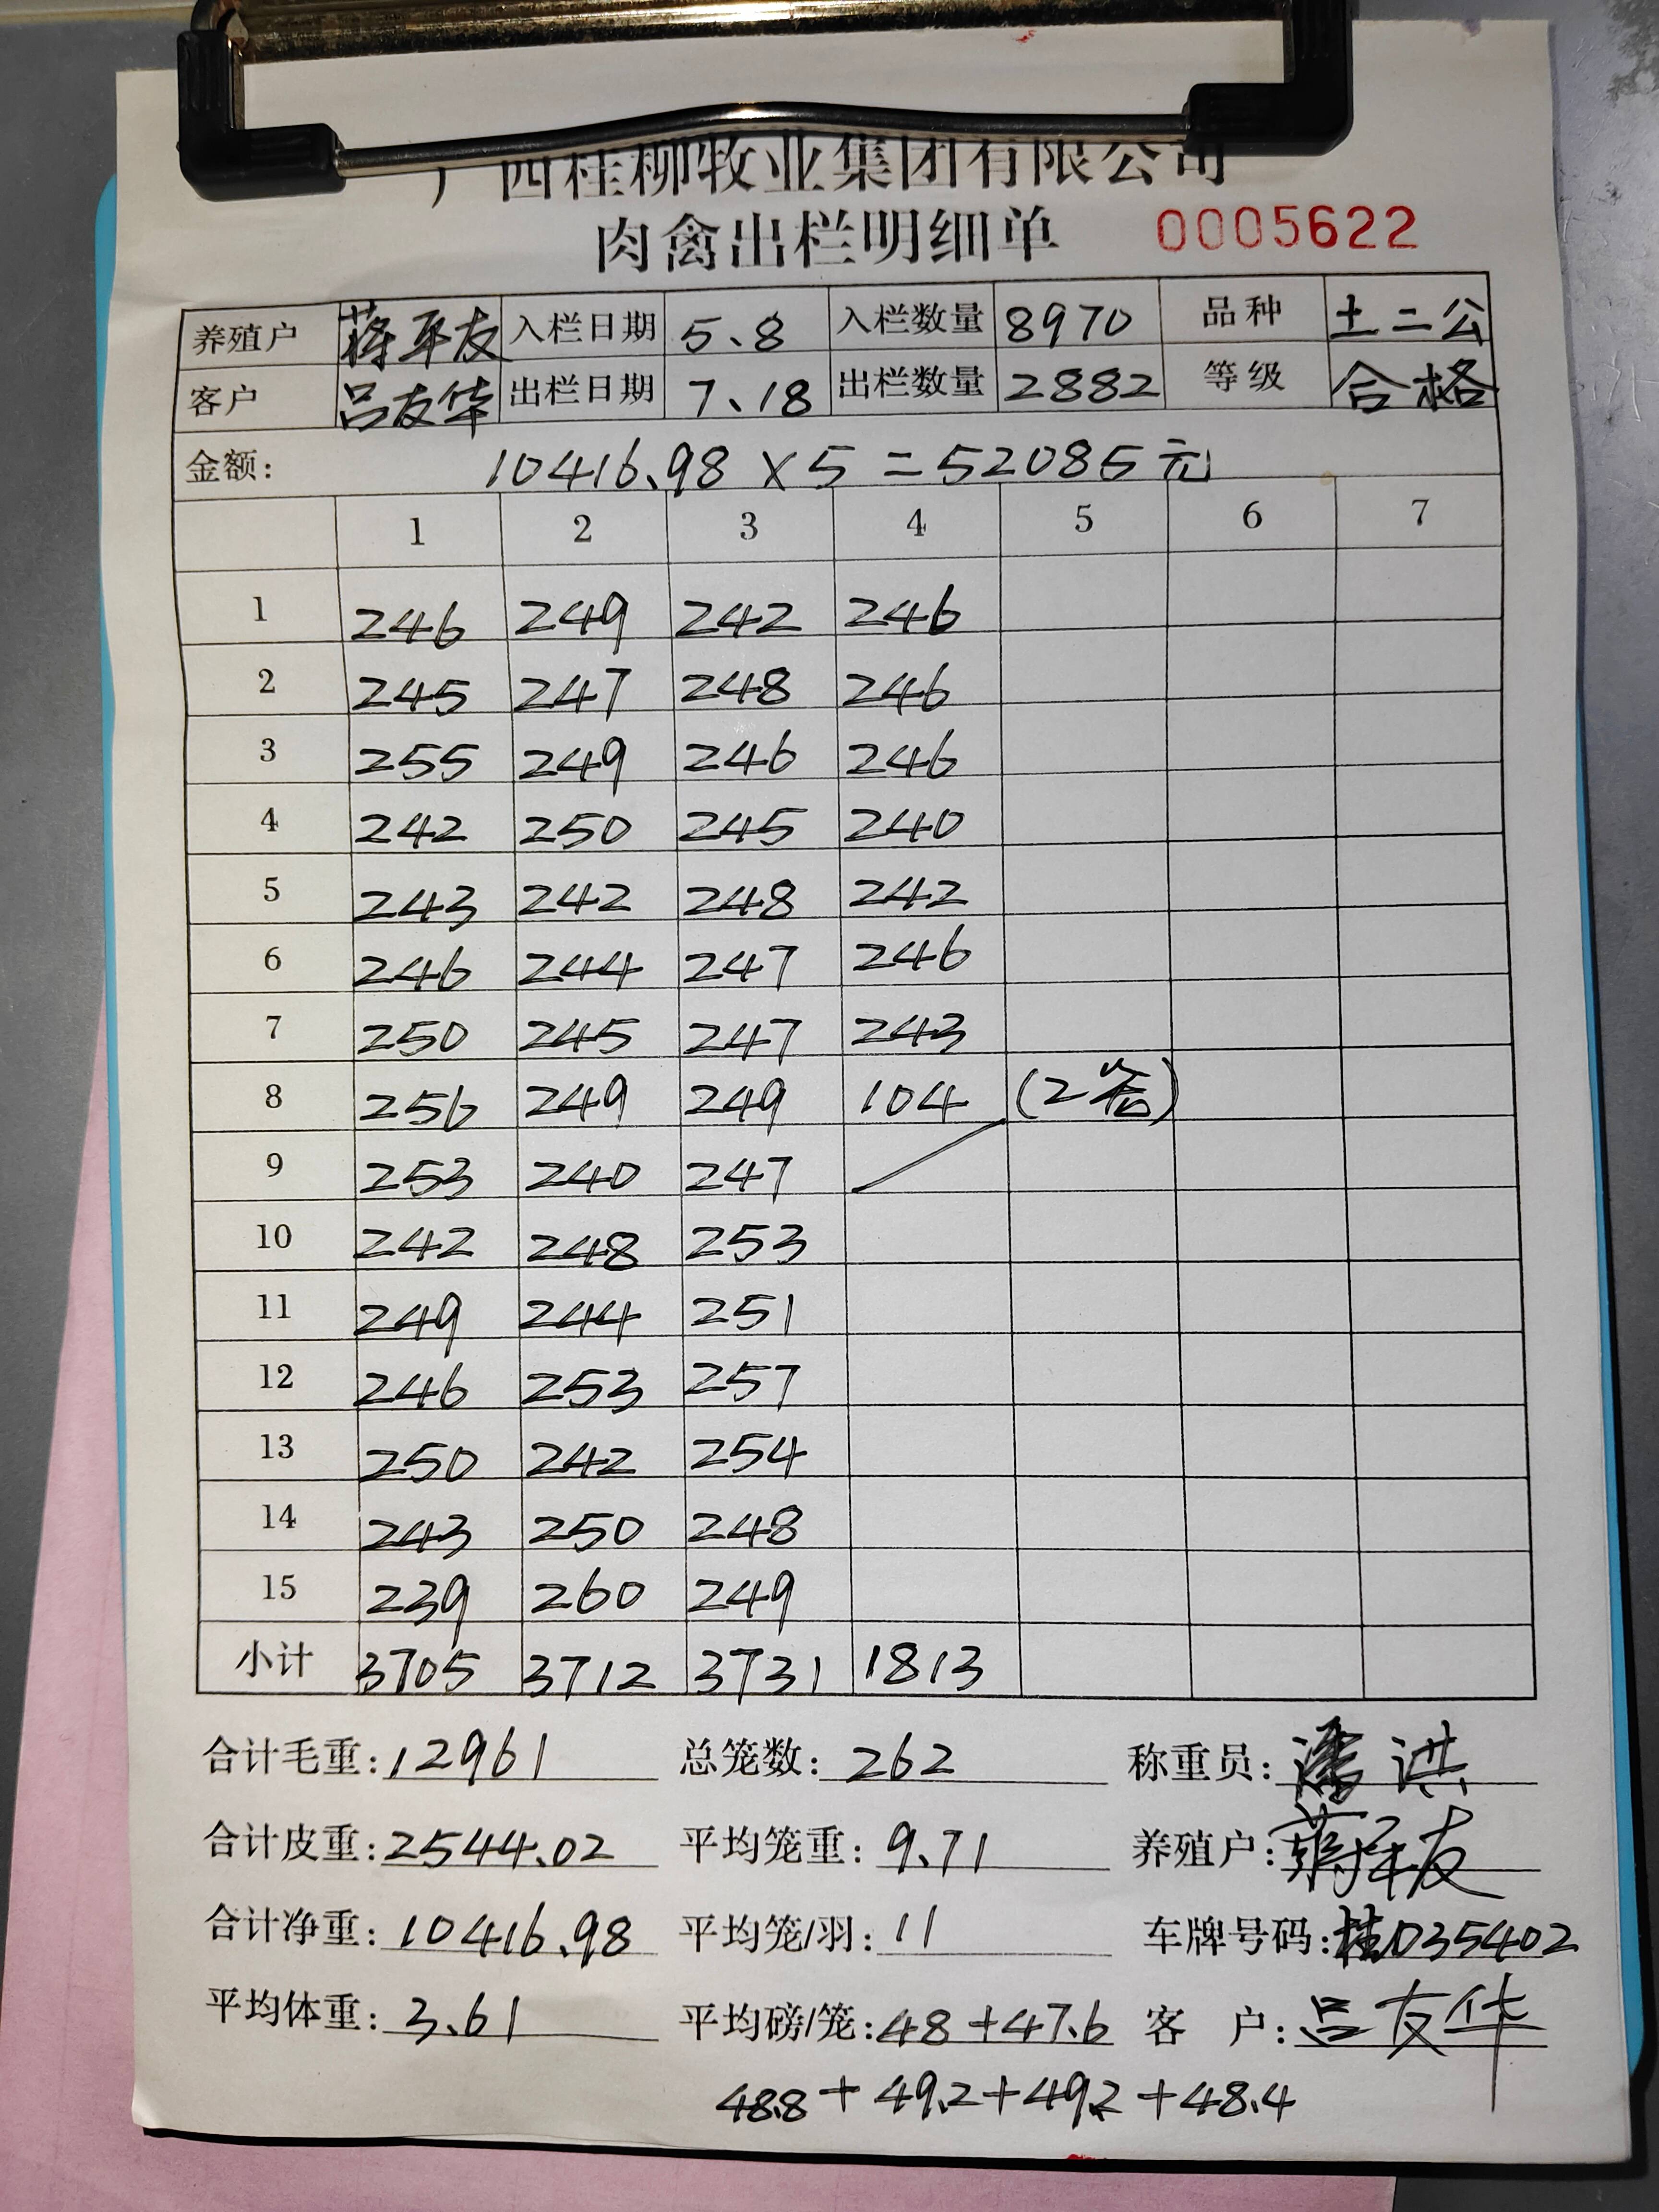 广西桂柳牧业集团有限公司
肉禽出栏明细单 0005622
养殖户 蒋平友 入栏日期 5.8 入栏数量 8970 品种 土二公
客户 吕友华 出栏日期 7.18 出栏数量 2882 等级 合格
金额: 10416.98 × 5 = 52085元
1 2 3 4 5 6 7
1 246 249 242 246
2 245 247 248 246
3 255 249 246 246
4 242 250 245 240
5 243 242 248 242
6 246 244 247 246
7 250 245 247 243
8 256 249 249 104 (2笼)
9 253 240 247
10 242 248 253
11 249 244 251
12 246 253 257
13 250 242 254
14 243 250 248
15 239 260 249
小计 3705 3712 3731 1813
合计毛重: 12961 总笼数: 262 称重员: 潘洪
合计皮重: 2544.02 平均笼重: 9.71 养殖户: 蒋平友
合计净重: 10416.98 平均笼/羽: 11 车牌号码: 桂D35402
平均体重: 3.61 平均磅/笼: 48+47.6 客 户: 吕友华
48.8+49.2+49.2+48.4